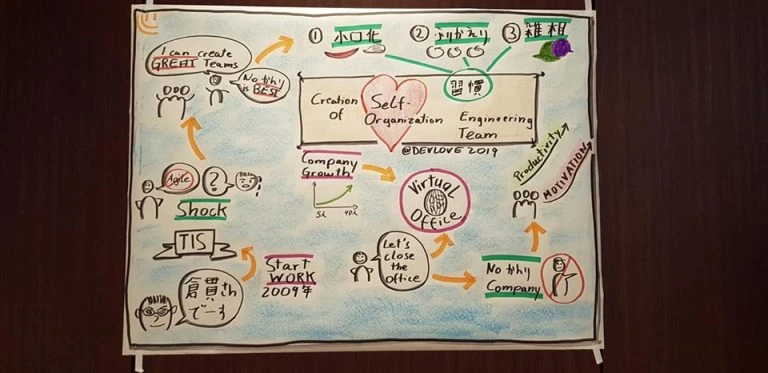 ① 小口化
② ふりかえり
③ 雑相
習慣
I can create
GREAT Teams
No かんり
is BEST
Creation
of
Self-
Organization
Engineering
Team
@DEVLOVE 2019
Company
Growth
5人
40人
Virtual
Office
Productivity
MOTIVATIONS
Agile
?
Shock
TIS
倉貫さん
でーす
Start
WORK
2009年
Let's
close
the
office
No かんり
Company